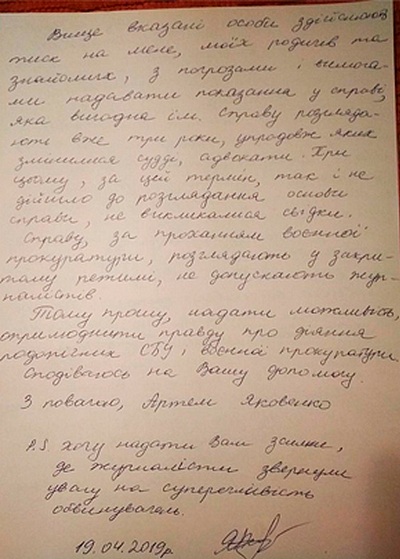 Вище вказані особи здійснюють
тиск на мене, моїх родичів та
знайомих, з погрозами і вимога-
ми надавати показання у справі,
яка вигодна їм. Справу розгляда-
ють вже три роки, упродовж яких
змінилися судді, адвокати. При
цьому, за цей термін, так і не
дійшло до розглядання основи
справи, не викликалися свідки.
Справу, за проханням воєнної
прокуратури, розглядають у закри-
тому режимі, не допускають жур-
налістів.
Тому прошу, надати можливість,
оприлюднити правду про діяння
СБУ і воєнної прокуратури.
Сподіваюсь на Вашу допомогу.
З повагою, Артем Яковенко
P.S. хочу надати Вам
де журналісти звернули
увагу на суперечливість
обвинувачень.
19.04.2019р.